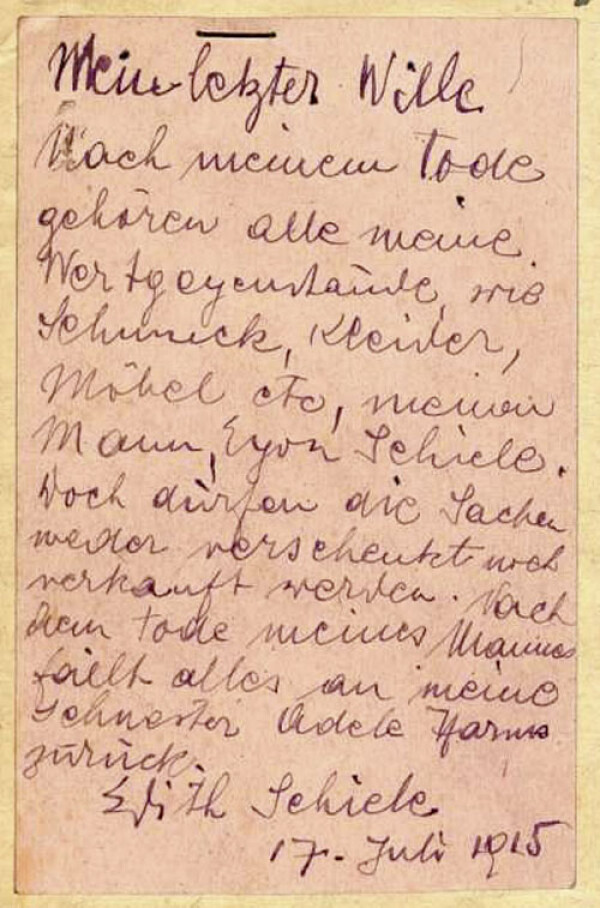 Mein letzter Wille
Nach meinem Tode
gehören alle meine
Wertgegenstände, wie
Schmuck, Kleider,
Möbel etc, meinen
Mann, Egon Schiele.
Doch dürfen die Sachen
weder verschenkt noch
verkauft werden. Nach
dem Tode meines Mannes
fällt alles an meine
Schwester Adele Harms
zurück.
Edith Schiele
17. Juli 1915